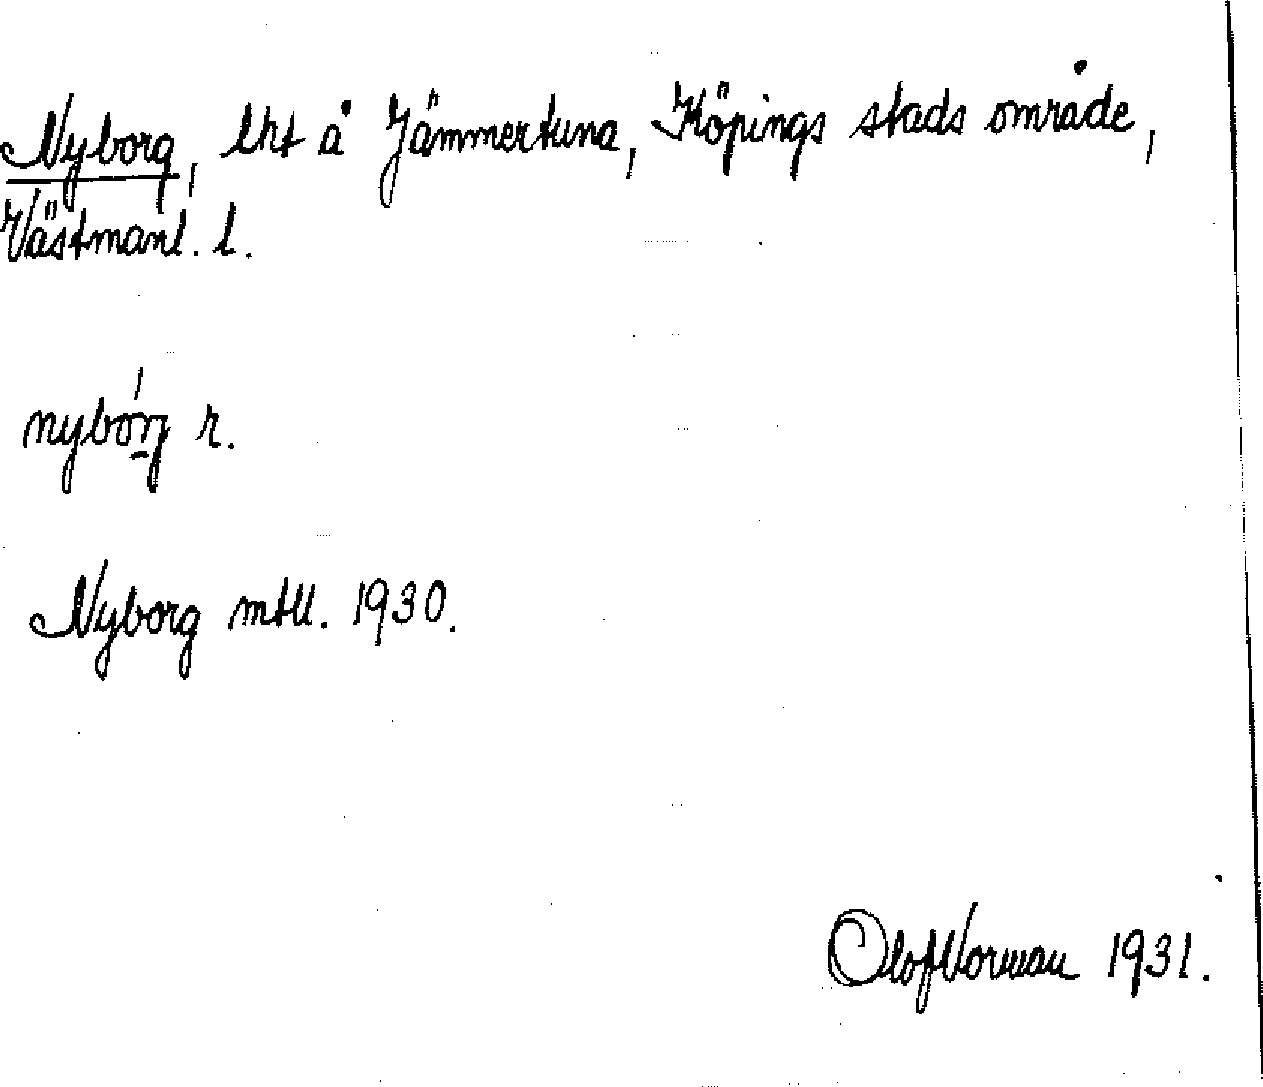 Nyborg, lht å Jämmertuna, Köpings stads område,
Västmanl. l.
nybórj r.
Nyborg mtll. 1930.
Olof Norman 1931.